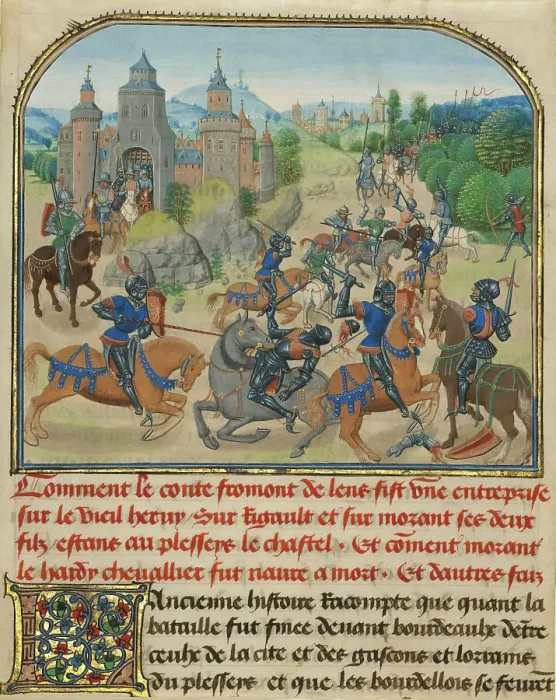 Comment le conte fromont de lens fist vne entreprise
sur le vieil heruy Sur Rigault et sur morant ses deux
filz estans au plesseys le chastel. Et cõment morant
le hardy cheuallier fut naure a mort. Et dautres faiz
Ancienne histoire Racompte que quant la
bataille fut finee deuant bourdeaulx dentre
ceulx de la cite et des gascons et lorrains
du plesseys et que les bourdellois se feirent